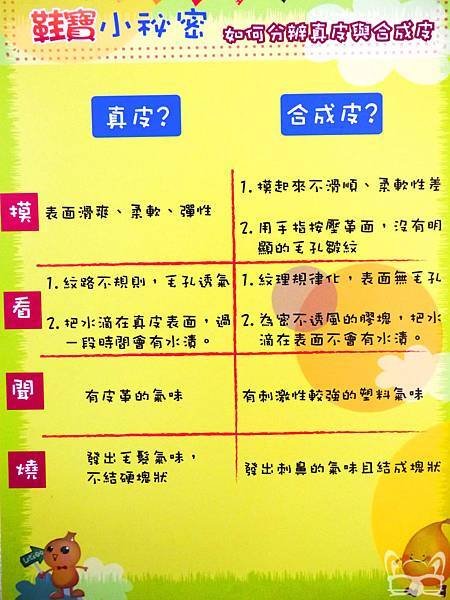 鞋寶小祕密 如何分辨真皮與合成皮
真皮?
合成皮?
摸
表面滑爽、柔軟、彈性
1.摸起來不滑順、柔軟性差
2.用手指按壓革面,沒有明
顯的毛孔皺紋
看
1.紋路不規則,毛孔透氣
2.把水滴在真皮表面,過
一段時間會有水漬。
1.紋理規律化,表面無毛孔
2.為密不透風的膠塊,把水
滴在表面不會有水漬。
聞
有皮革的氣味
有刺激性較強的塑料氣味
燒
發出毛髮氣味,
不結硬塊狀
發出刺鼻的氣味且結成塊狀